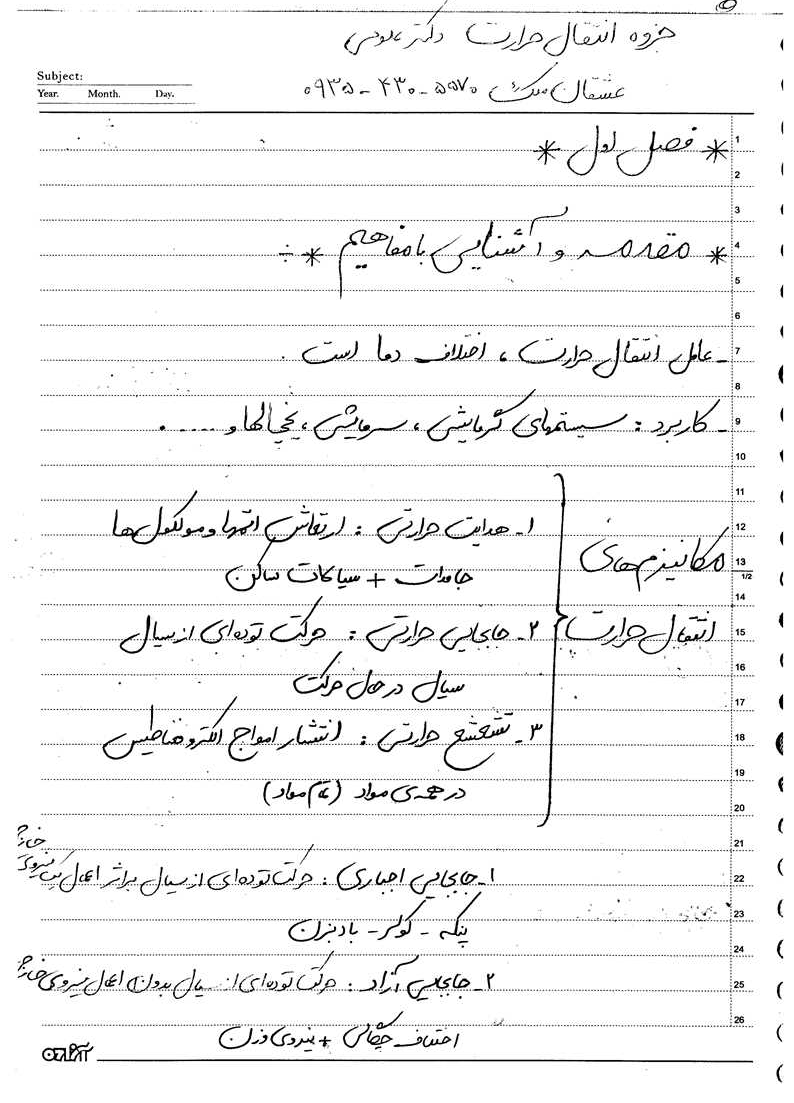 جزوه انتقال حرارت دکتر طوسی
Subject:
Year. Month. Day.
عشقال ملک ۰۹۳۵-۴۳۰-۵۵۷۰
* فصل اول *
* مقدمه و آشنایی با مفاهیم * ÷
- عامل انتقال حرارت ، اختلاف دما است .
- کاربرد : سیستمهای گرمایشی ، سرمایشی ، یخچالها و .....
مکانیزم های
انتقال حرارت
۱- هدایت حرارتی : ارتعاش اتمها و مولکول ها
جامدات + سیالات ساکن
۲- جابجایی حرارتی : حرکت توده‌ای از سیال
سیال در حال حرکت
۳- تشعشع حرارتی : انتشار امواج الکترومغناطیس
در همه‌ی مواد (تمام مواد)
۱- جابجایی اجباری : حرکت توده‌ای از سیال براثر اعمال یک نیروی خارج
پنکه - کولر - بادبزن
۲- جابجایی آزاد : حرکت توده‌ای از سیال بدون اعمال نیروی خارج
اختلاف چگالی + نیروی وزن
1
2
3
4
5
6
7
8
9
10
11
12
13
1/2
14
15
16
17
18
19
20
21
22
23
24
25
26